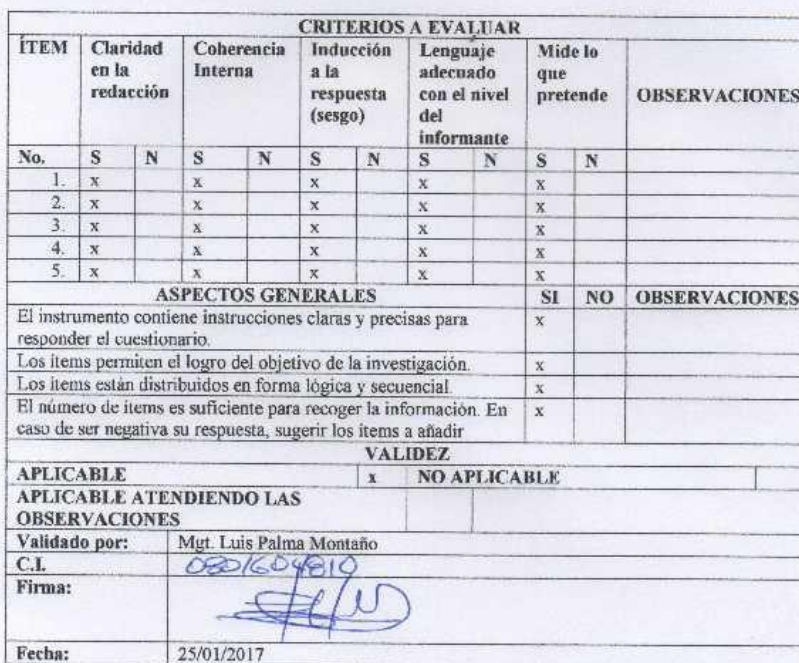 CRITERIOS A EVALUAR
ÍTEM Claridad en la redacción Coherencia Interna Inducción a la respuesta (sesgo) Lenguaje adecuado con el nivel del informante Mide lo que pretende OBSERVACIONES
No. S N S N S N S N S N
1. x x x x x
2. x x x x x
3. x x x x x
4. x x x x x
5. x x x x x
ASPECTOS GENERALES SI NO OBSERVACIONES
El instrumento contiene instrucciones claras y precisas para x
responder el cuestionario.
Los ítems permiten el logro del objetivo de la investigación. x
Los ítems están distribuidos en forma lógica y secuencial. x
El número de ítems es suficiente para recoger la información. En x
caso de ser negativa su respuesta, sugerir los ítems a añadir
VALIDEZ
APLICABLE x NO APLICABLE
APLICABLE ATENDIENDO LAS
OBSERVACIONES
Validado por: Mgt. Luis Palma Montaño
C.I. 0801604810
Firma:
Fecha: 25/01/2017